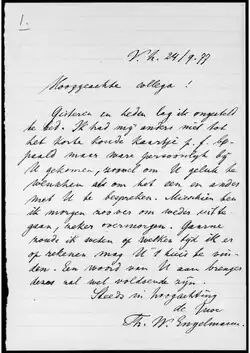 1.
V. h. 24/9. 77
Hooggeachte collega!
Gisteren en heden lag ik ongesteld
te bed. Ik had mij anders niet tot
het korte koude kaartje p. f. be-
paald maar ware persoonlijk bij
U gekomen, zoowel om U geluk te
wenschen als om het een en ander
met U te bespreken. Misschien ben
ik morgen zoover om weder uit te
gaan, zeker overmorgen. Gaarne
zoude ik weten op welken tijd ik er
op rekenen mag U t'huis te vin-
den. Een woord van U aan brenger
dezes zal wel voldoende zijn.
Steeds in hoogachting
de Uwe
Th. W. Engelmann.